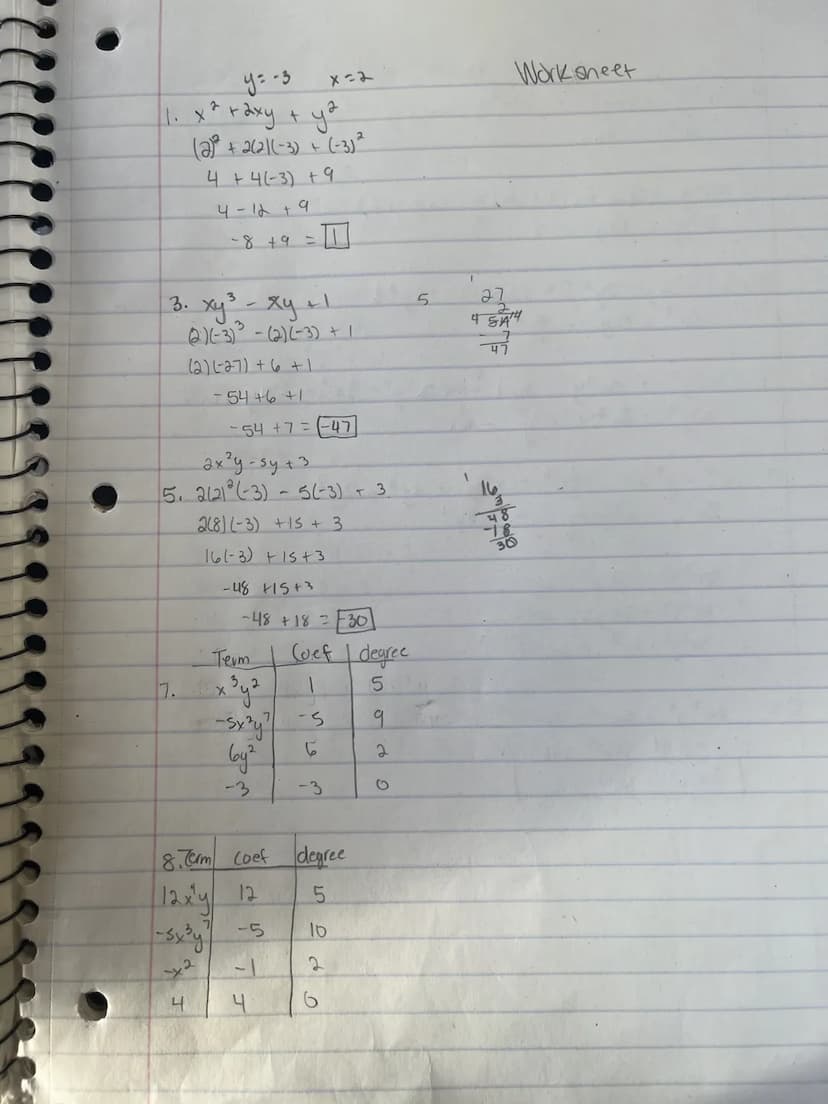 Worksheet
y=-3 x=2
1. x² + 2xy + y²
(2)² + 2(2)(-3) + (-3)²
4 + 4(-3) + 9
4 - 12 + 9
-8 + 9 = 1
3. xy³ - xy + 1
2)(-3)³ - (2)(-3) + 1
(2)(-27) + 6 + 1
-54 + 6 + 1
-54 + 7 = -47
5
1
27
2
- 7
47
2x²y - 5y + 3
5. 2(2)²(-3) - 5(-3) + 3
2(8)(-3) + 15 + 3
16(-3) + 15 + 3
-48 + 15 + 3
-48 + 18 = -30
1
16
3
48
-18
30
Term Coef degree
7. x³y² 1 5
-5x²y⁷ -5 9
6y² 6 2
-3 -3 0
8. Term coef degree
12x⁴y 12 5
-5x³y⁷ -5 10
-x² -1 2
4 4 0